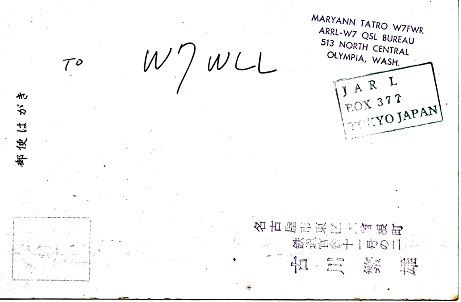 MARYANN TATRO W7FWR
ARRL-W7 QSL BUREAU
513 NORTH CENTRAL
OLYMPIA, WASH.
TO W7WLL
J A R L
BOX 377
TOKYO JAPAN
郵便はがき
名古屋市東区
十一号の二
川 繁 雄